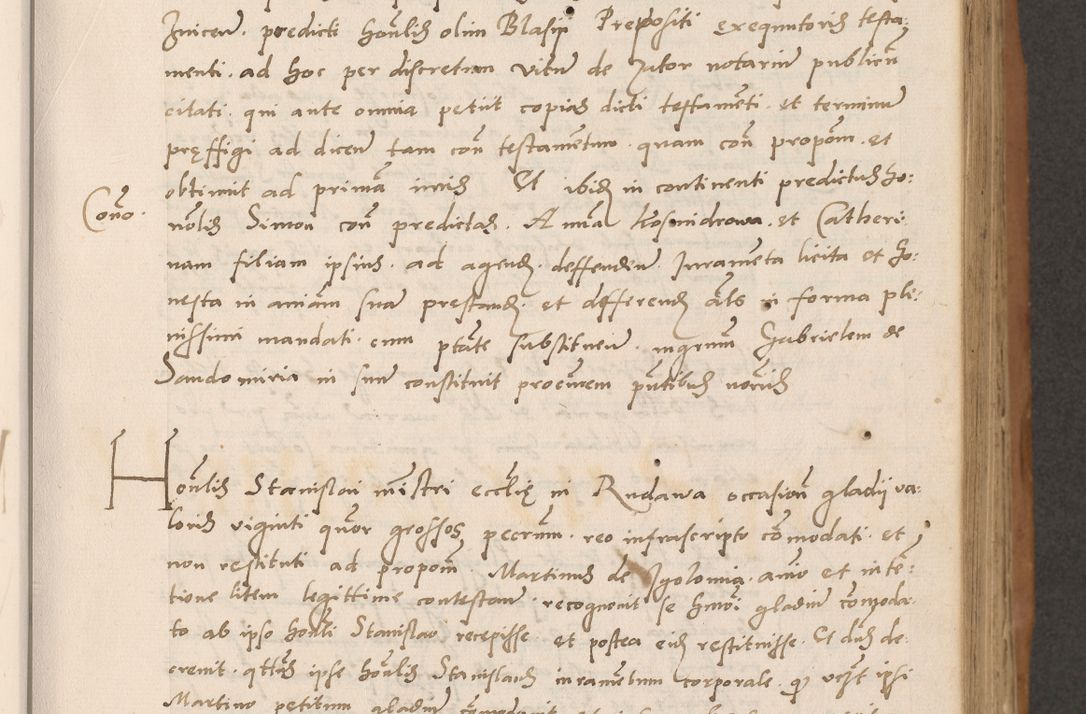 Inicen̄. predicti hon̄lis olim Blasii Prepositi exequutoris testa:
menti. ad hoc per discretum virū de notariū publicū
citati. qui ante omnia petiit copias dicti testamēti. et terminū
pręffigi ad dicen̄ tam con̄ testamētum. quam con̄ propoīm. et
obtinuit ad primā Et ibid in continenti predictus ho:
Con̄o.
nōlis Simon con̄ predictas. Annā Kosmidrowa. et Catheri:
nam filiam ipsius. ad agend. deffenden̄. Iuramenta licita et ho:
nesta in aniām suā prestand. et defferend āls in forma ple:
nissimi mandati. cum ptāte substituen̄. mgrum̄ Gabrielem de
Sandomiria in suū constituit procurem pn̄tibus
Hon̄lis Stanislai min̄istri eccl̄ię in Rudawa occasion̄ gladii va:
loris viginti quor grossos pecun̄. reo infrascripto cōmodati. et
non restituti ad propom̄ Martinus de Igolomia. anīo et inten̄:
tione litem legittime contestan̄. recognovit se hmōi gladiū cōmoda:
to ab ipso honli Stanislao recepisse et postea eid restituisse. Et dn̄s de:
crevit. ipse hon̄lis Stanislaus iuramentum corporale. ipsi
Martino petitum gladiū